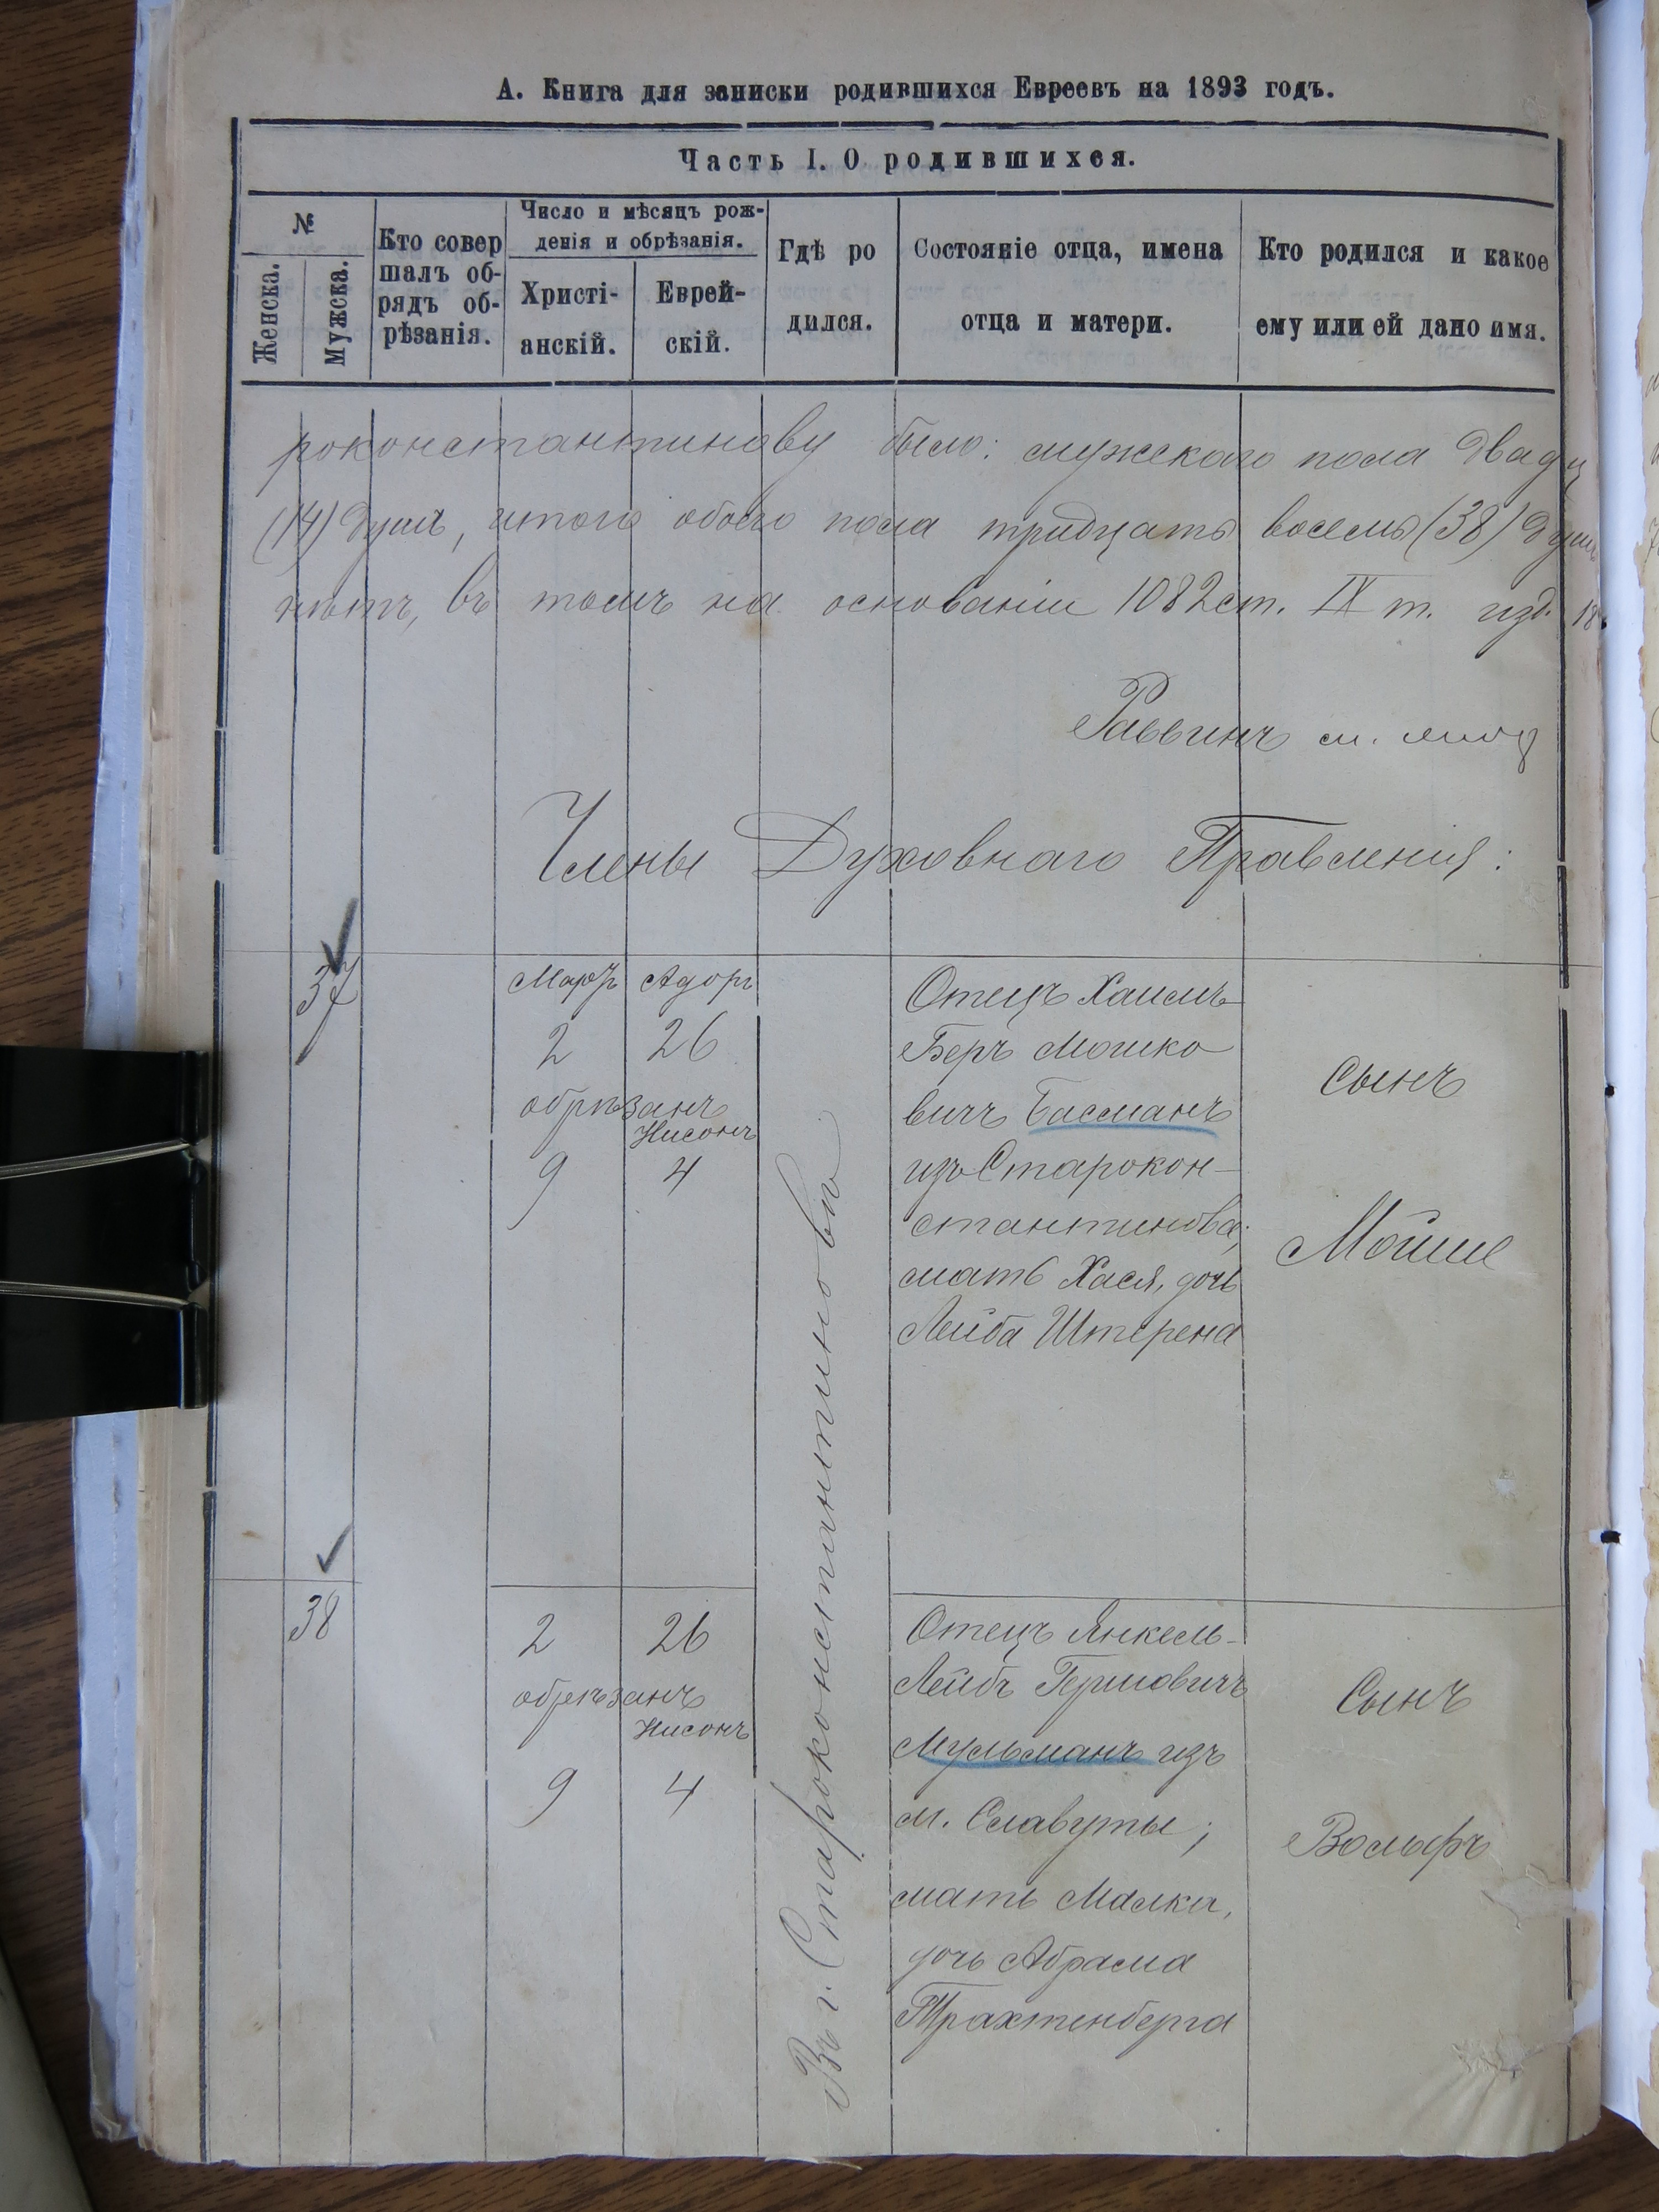 А. Книга для записки родившихся Евреевъ на 1893 годъ.
Часть I. О родившихся.
№
Женска.
Мужска.
Кто совер
шалъ об-
рядъ об-
рѣзанія.
Число и мѣсяцъ рож-
денія и обрѣзанія.
Христі-
анскій.
Еврей-
скій.
Гдѣ ро
дился.
Состояніе отца, имена
отца и матери.
Кто родился и какое
ему или ей дано имя.
роконстантинову было: мужскаго пола двадц
(14) душъ, итого обоего пола тридцать восемь (38) душъ
нѣтъ, въ томъ на основаніи 1082 ст. IX т. изд. 18
Раввинъ
Члены Духовнаго Правленія:
37
Мартъ Адоръ
2 26
обрѣзанъ
Нисонъ
9 4
Въ г. Староконстантиновѣ
Отецъ Хаимъ-
Беръ Мошко
вичъ Басманъ
изъ Старокон-
стантинова;
мать Хася, дочь
Лейба Штерена
Сынъ
Мойше
38
2 26
обрѣзанъ
Нисонъ
9 4
Отецъ Янкель-
Лейбъ Гершовичъ
Мульманъ изъ
м. Славуты;
мать Малка,
дочь Абрама
Трахтенберга
Сынъ
Вольфъ